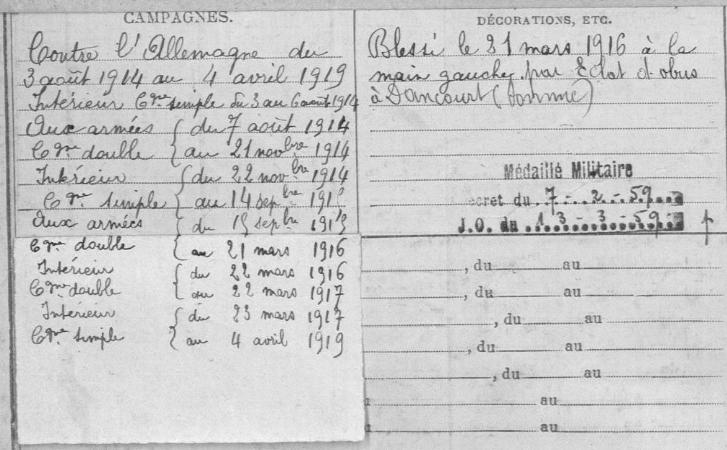 CAMPAGNES.
Contre l'Allemagne du
3 août 1914 au 4 avril 1919
Intérieur Cgne simple du 3 au 6 août 1914
Aux armées { du 7 août 1914
Cgne double { au 21 novbre 1914
Intérieur { du 22 novbre 1914
Cgne simple { au 14 sepbre 1915
Aux armées { du 15 sepbre 1915
Cgne double { au 21 mars 1916
Intérieur { du 22 mars 1916
Cgne double { au 22 mars 1917
Intérieur { du 23 mars 1917
Cgne simple { au 4 avril 1919
DÉCORATIONS, ETC.
Blessé le 21 mars 1916 à la
main gauche par Eclat d'obus
à Dancourt (Somme)
Médaillé Militaire
ecret du 7-2-59
J.O. du 13-3-59
, du au
, du au
, du au
, du au
, du au
au
au